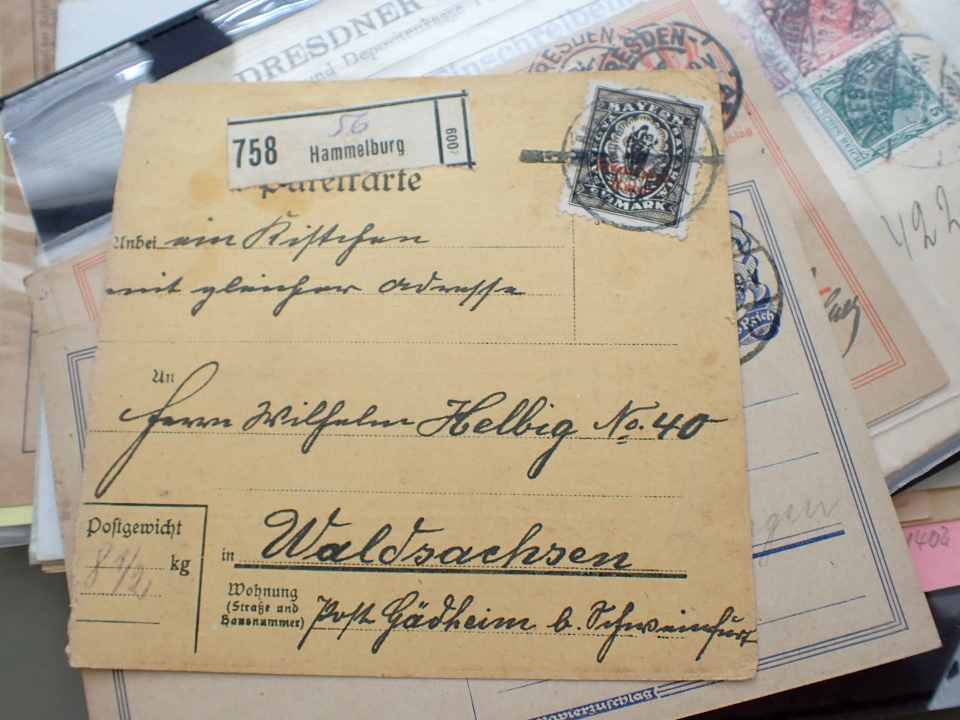 DRESDNER
und Depositenkasse
Einschreiben
DRESDEN-
422
758 Hammelburg
56
600
Paketkarte
BAYERN
MARK
Anbei ein Kistchen
mit gleicher Adresse
An
Herrn Wilhelm Helbig No. 40
Postgewicht
8 1/2 kg
in Waldsachsen
Wohnung
(Straße und
Hausnummer) Post Gädheim b. Schweinfurt
Reich
1402